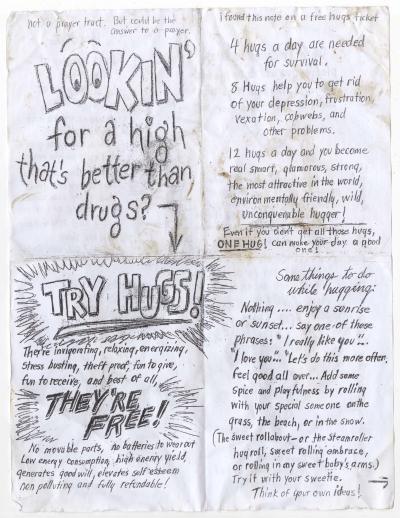 not a prayer trust. But could be the
answer to a prayer.
LOOKIN'
for a high
that's better than
drugs?
TRY HUGS!
They're invigorating, relaxing, energizing,
stress busting, theft proof, fun to give,
fun to receive, and best of all,
THEY'RE
FREE!
No movable parts, no batteries to wear out
Low energy consumption, high energy yield,
generates good will, elevates self esteem
non polluting and fully refundable!
i found this note on a free hugs ticket
4 hugs a day are needed
for survival.
8 Hugs help you to get rid
of your depression, frustration,
vexation, cobwebs, and
other problems.
12 hugs a day and you become
real smart, glamorous, strong,
the most attractive in the world,
environmentally friendly, wild,
unconquerable hugger!
Even if you don't get all those hugs,
ONE HUG! can make your day a good
one!
Some things to do
while hugging:
Nothing .... enjoy a sunrise
or sunset... Say one of those
phrases: "I really like you"..
"I love you".. "Let's do this more often.
feel good all over... Add some
spice and playfulness by rolling
with your special someone on the
grass, the beach, or in the snow.
(The sweet rollabout - or the steamroller
hug roll, sweet rolling embrace,
or rolling in my sweet baby's arms.)
Try it with your sweetie.
Think of your own ideas!